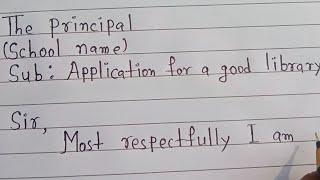 The Principal
(School name)
Sub: Application for a good library
Sir,
Most respectfully I am